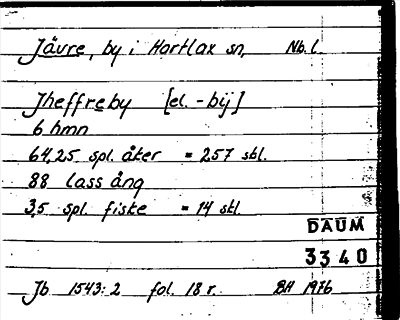 Jävre, by i Hortlax sn, Nb.l.
Jheffreby [el. -bÿ]
6 hmn
64,25 spl. åker = 257 skl.
88 lass äng
3,5 spl. fiske = 14 skl.
DAUM
3340
Jb 1543:2 fol. 18 r. BH 1976